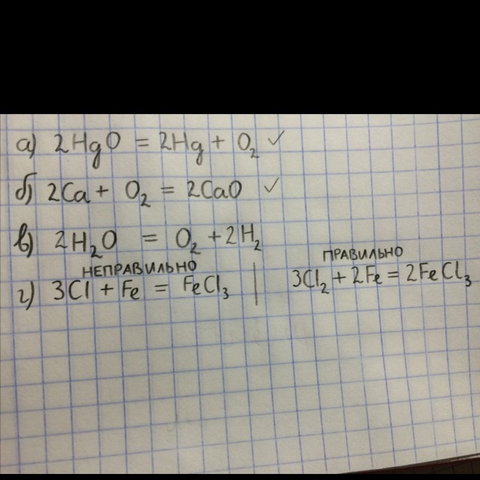 а) 2HgO = 2Hg + O₂ ✓
б) 2Ca + O₂ = 2CaO ✓
в) 2H₂O = O₂ + 2H₂
НЕПРАВИЛЬНО
г) 3Cl + Fe = FeCl₃
ПРАВИЛЬНО
3Cl₂ + 2Fe = 2FeCl₃